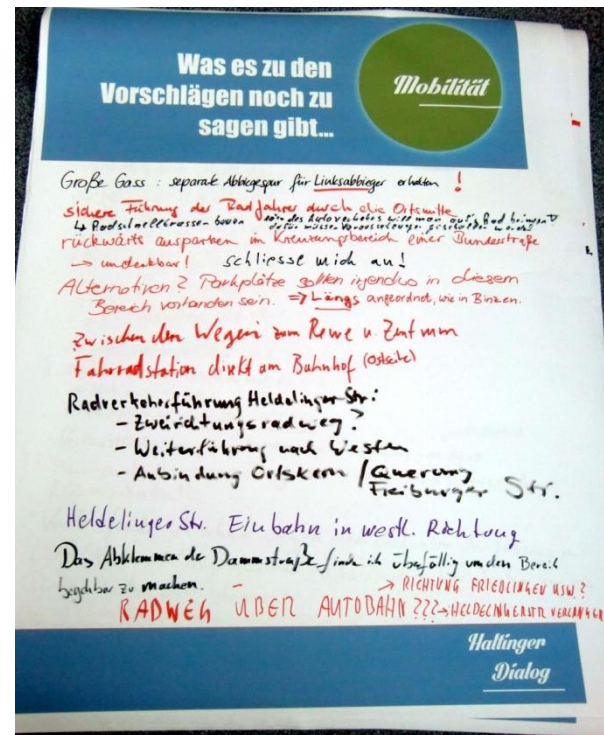 Was es zu den
Vorschlägen noch zu
sagen gibt...
Mobilität
Große Gass : separate Abbiegespur für Linksabbieger erhalten !
sichere Führung der Radfahrer durch die Ortsmitte
↳ Radschnelltrassen bauen des Autoverkehrs will man aufs Rad bringen
dafür müssen Voraussetzungen geschaffen werden
rückwärts ausparken im Kreuzungsbereich einer Bundesstraße
→ undenkbar! schliesse mich an!
Alternativen? Parkplätze sollten irgendwo in diesem
Bereich vorhanden sein. => Längs angeordnet, wie in Binzen.
zwischen den Wegen zum Rewe u. Zentrum
Fahrradstation direkt am Bahnhof (Ostseite)
Radverkehrsführung Heldelinger Str:
- Zweirichtungsradweg?
- Weiterführung nach Westen
- Anbindung Ortskern / Querung
Freiburger Str.
Heldelinger Str. Einbahn in westl. Richtung
Das Abklemmen der Dammstraße finde ich überfällig um den Bereich
begehbar zu machen.
→ RICHTUNG FRIEDLINGEN USW.?
RADWEG ÜBER AUTOBAHN ??? → HELDELINGERSTR VERLÄNGERN
Haltinger
Dialog